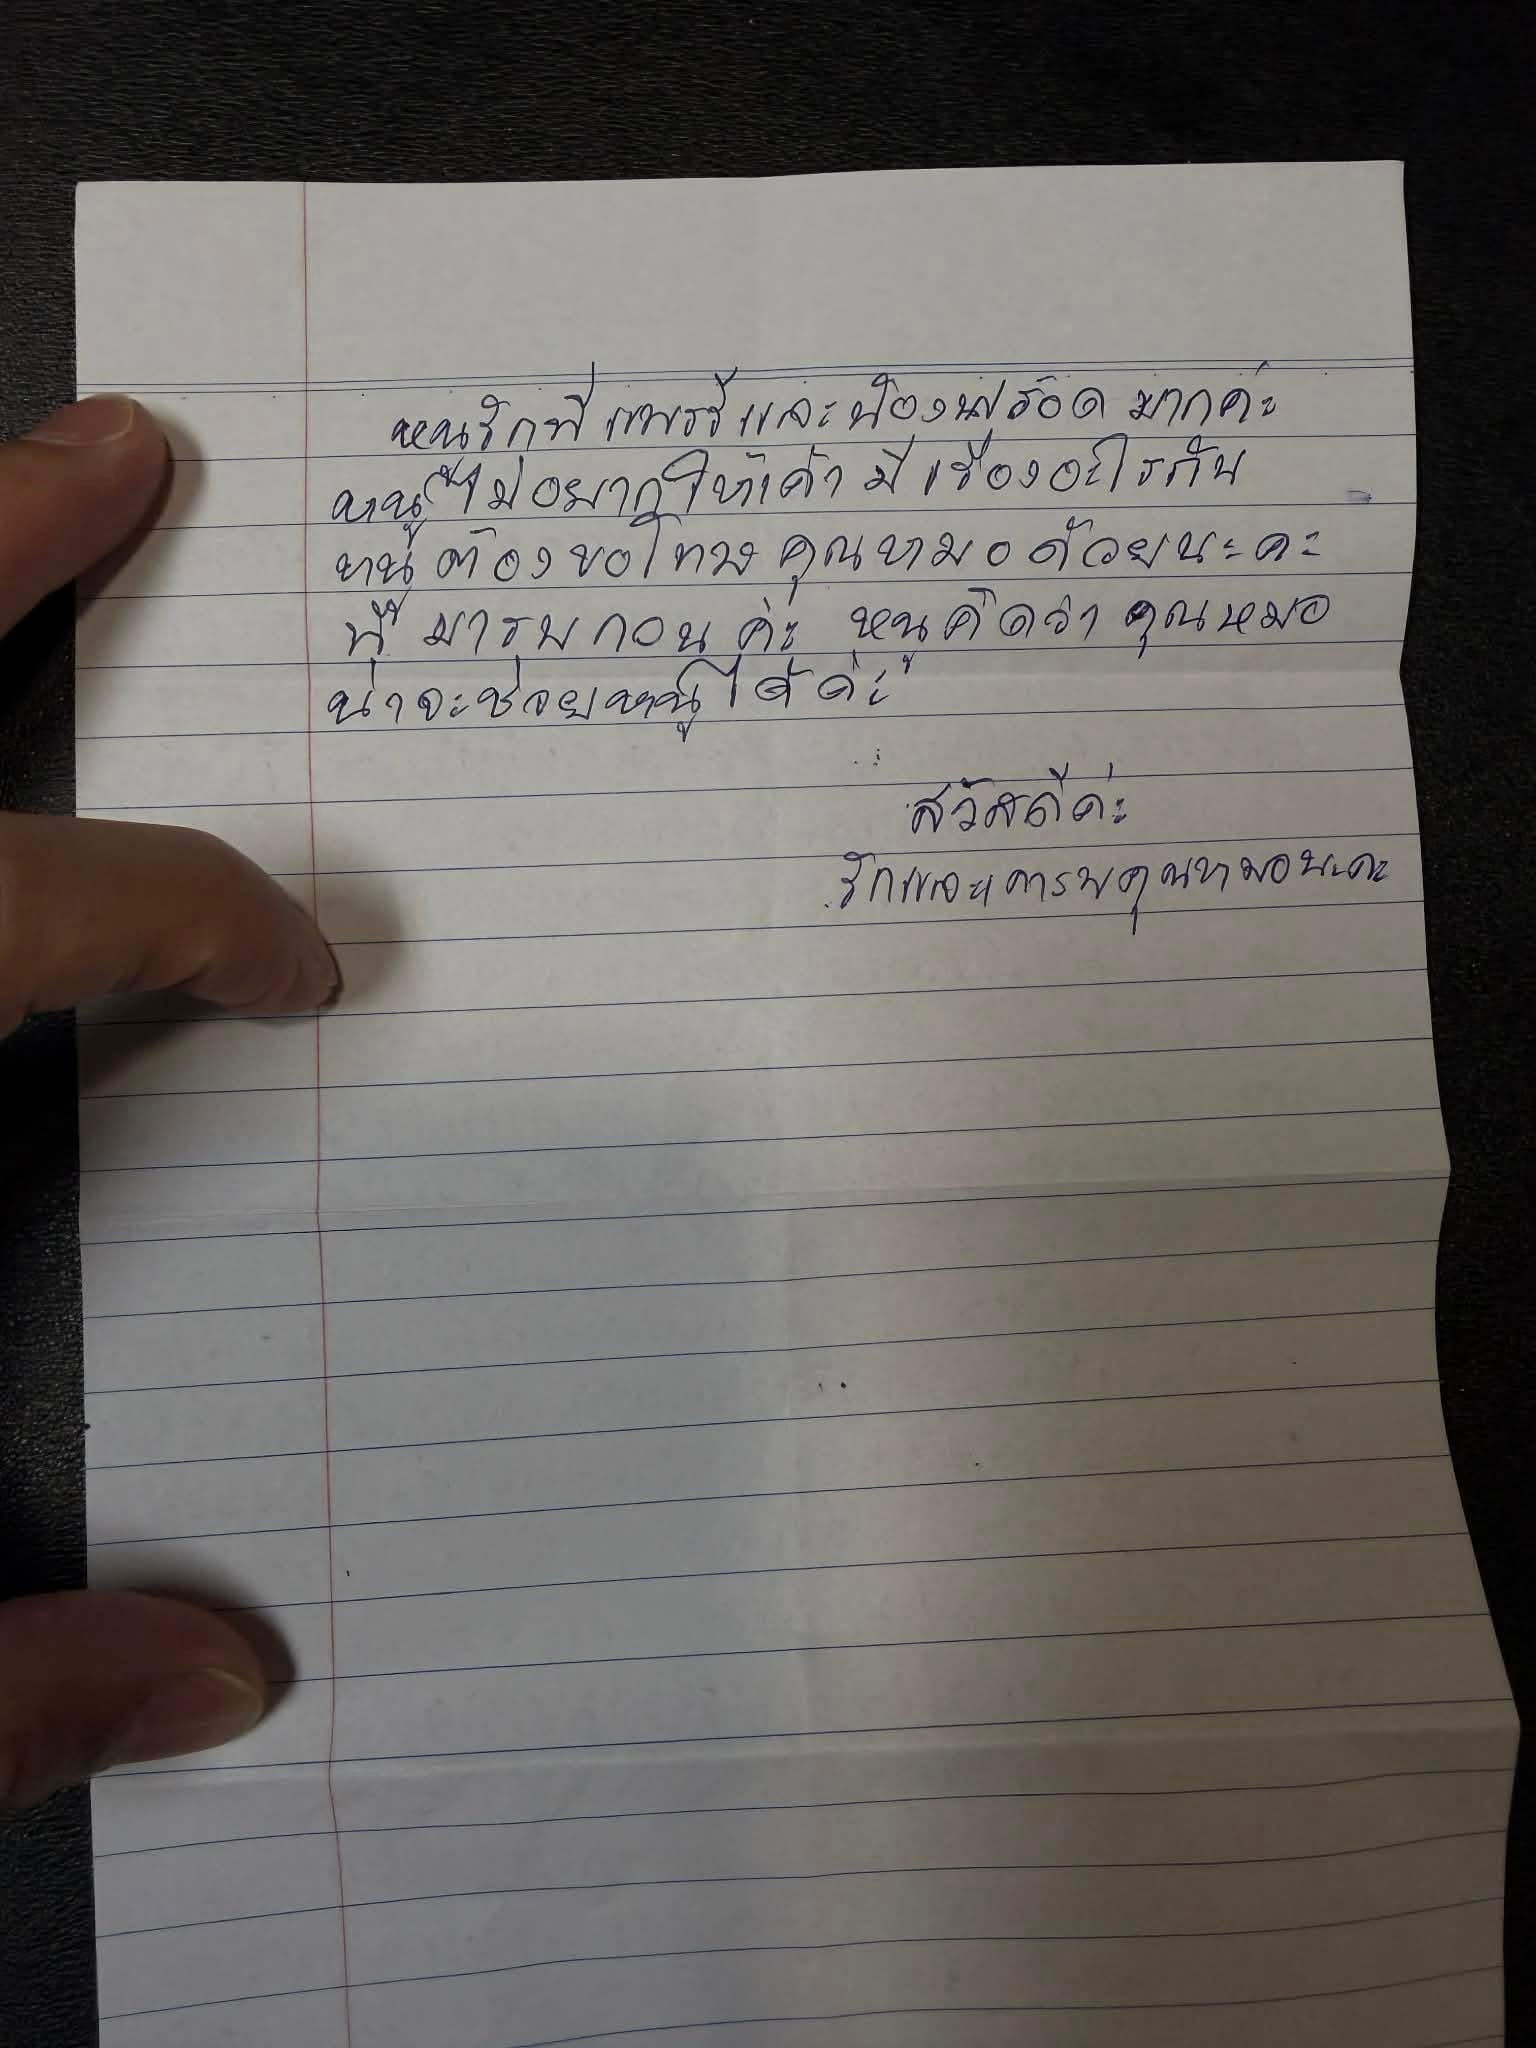 หนูรักพี่แพรรี่และน้องฟรอดมากค่ะ
หนูไม่อยากให้เค้ามีเรื่องอะไรกัน
หนูต้องขอโทษคุณหมอด้วยนะคะ
ที่มารบกวนค่ะ หนูคิดว่า คุณหมอ
น่าจะช่วยหนูได้ค่ะ
สวัสดีค่ะ
รักและเคารพคุณหมอนะคะ